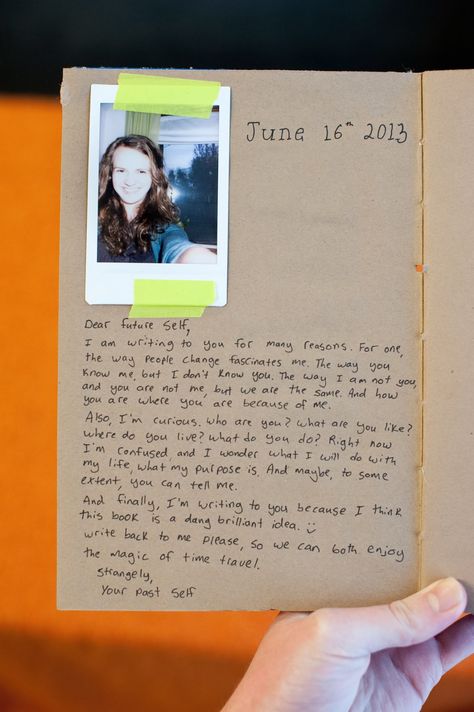 June 16th 2013
Dear future Self,
I am writing to you for many reasons. For one,
the way people change fascinates me. The way you
know me, but I don't know you. The way I am not you,
and you are not me, but we are the same. And how
you are where you are because of me.
Also, I'm curious. who are you? what are you like?
where do you live? what do you do? Right now
I'm confused, and I wonder what I will do with
my life, what my purpose is. And maybe, to some
extent, you can tell me.
And finally, I'm writing to you because I think
this book is a dang brilliant idea. :)
write back to me please, so we can both enjoy
the magic of time travel.
Strangely,
Your past Self